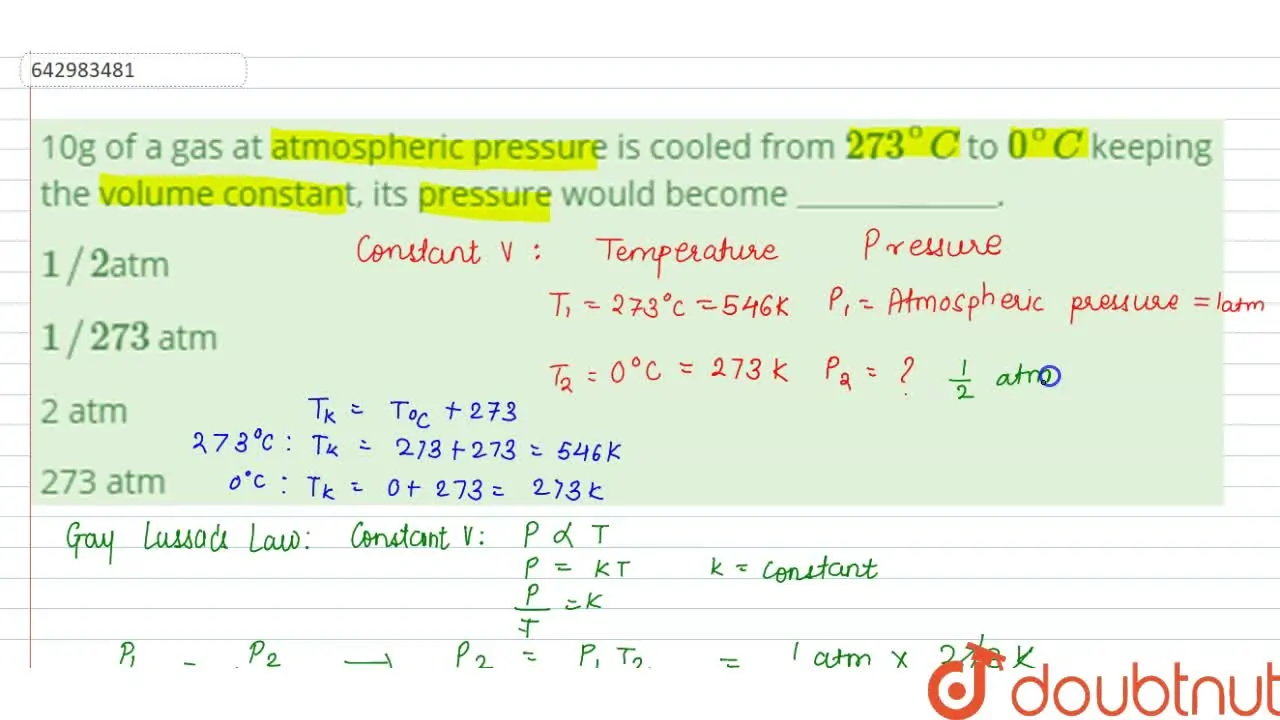 642983481
10g of a gas at atmospheric pressure is cooled from 273°C to 0°C keeping
the volume constant, its pressure would become ____________.
1/2atm
Constant V : Temperature Pressure
T₁ = 273°C = 546K P₁ = Atmospheric pressure = 1atm
1/273 atm
T₂ = 0°C = 273 K P₂ = ? 1/2 atm
2 atm
T_K = T°C + 273
273°C : T_K = 273 + 273 = 546K
273 atm
0°C : T_K = 0 + 273 = 273 K
Gay Lussac's Law: Constant V: P ∝ T
P = KT K = constant
P/T = K
P₁ = P₂ → P₂ = P₁ T₂ = 1 atm × 273 K
doubtnut